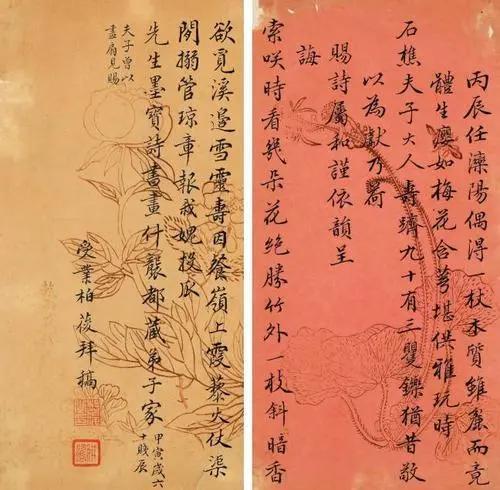 丙辰任灤陽偶得一杖本質雖麤而竟
體生癭如梅花含萼堪供雅玩時
石樵夫子大人壽躋九十有三矍鑠猶昔敬
以為獻乃荷
賜詩屬和謹依韻呈
誨
索咲時看幾朵花絕勝竹外一枝斜暗香
欲覓溪邊雪靈壽因餐嶺上霞藜火仗渠
閒搦管瓊章報我媿投瓜
先生墨寶詩畫什襲都藏弟子家
甲寅歲六
十賤辰
夫子曾以
畫扇見賜
受業柏葰拜稿